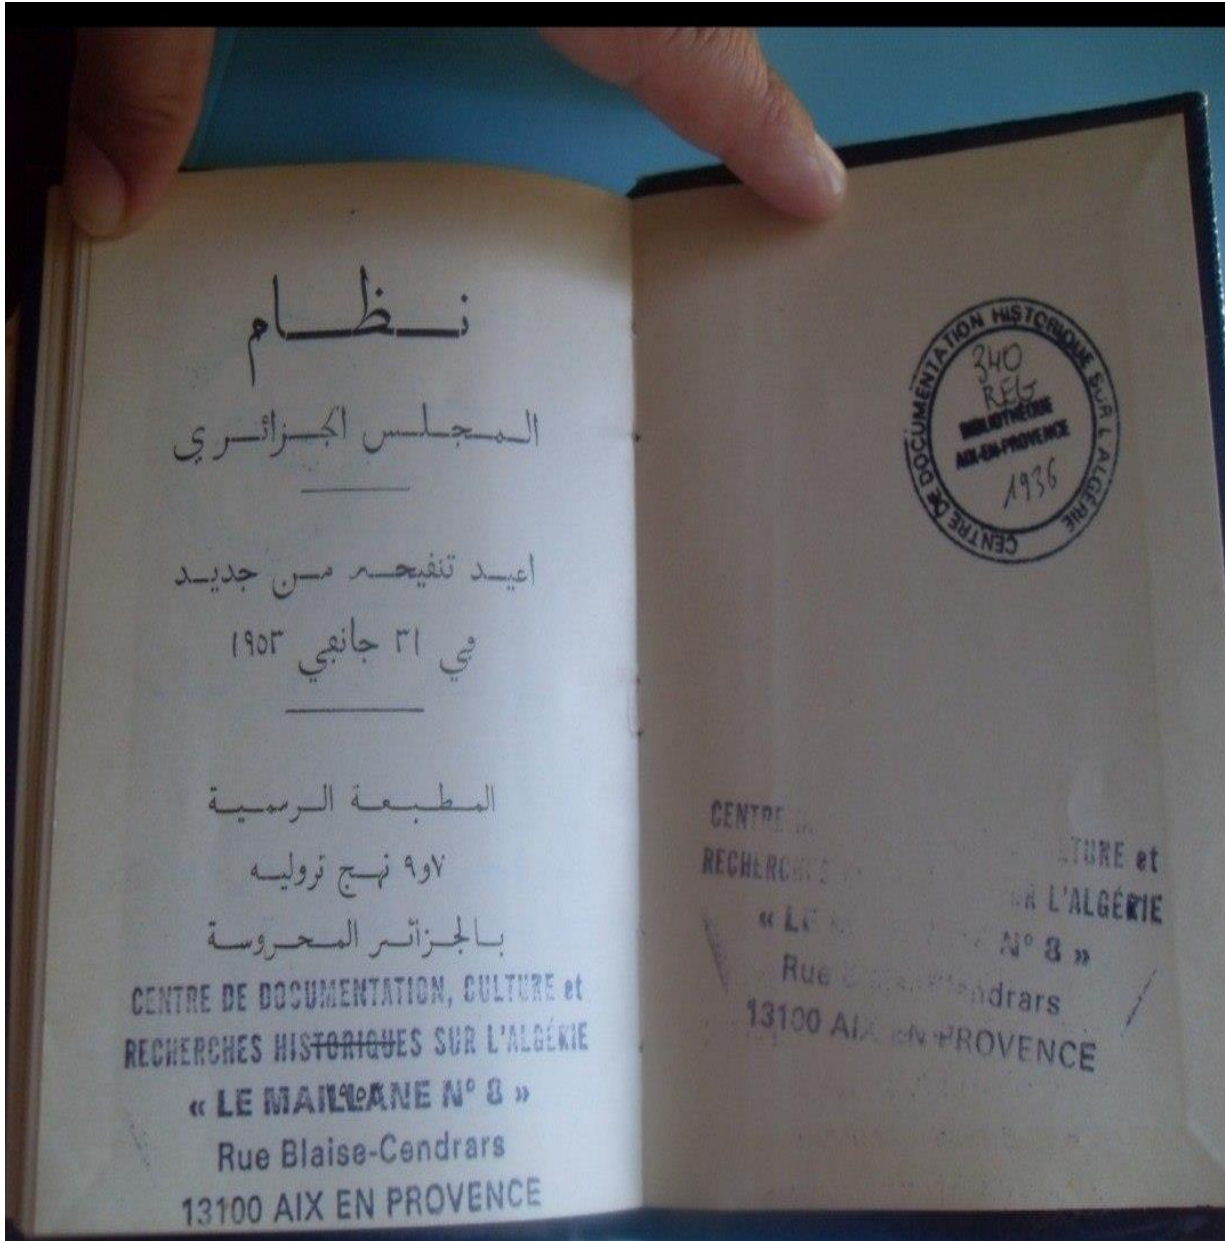 نظام
المجلس الجزائري
اعيد تنفيحه من جديد
في ٣١ جانفي ١٩٥٣
المطبعة الرسمية
٧و٩ نهج تروليه
بالجزائر المحروسة
CENTRE DE DOCUMENTATION, CULTURE et
RECHERCHES HISTORIQUES SUR L'ALGÉRIE
« LE MAILLANE N° 8 »
Rue Blaise-Cendrars
13100 AIX EN PROVENCE
CENTRE DE DOCUMENTATION HISTORIQUE SUR L'ALGÉRIE
340
REG
BIBLIOTHÈQUE
AIX-EN-PROVENCE
1936
CENTRE TURE et
RECHERCHES L'ALGÉRIE
« LE N° 8 »
Rue ndrars
13100 AIX EN PROVENCE